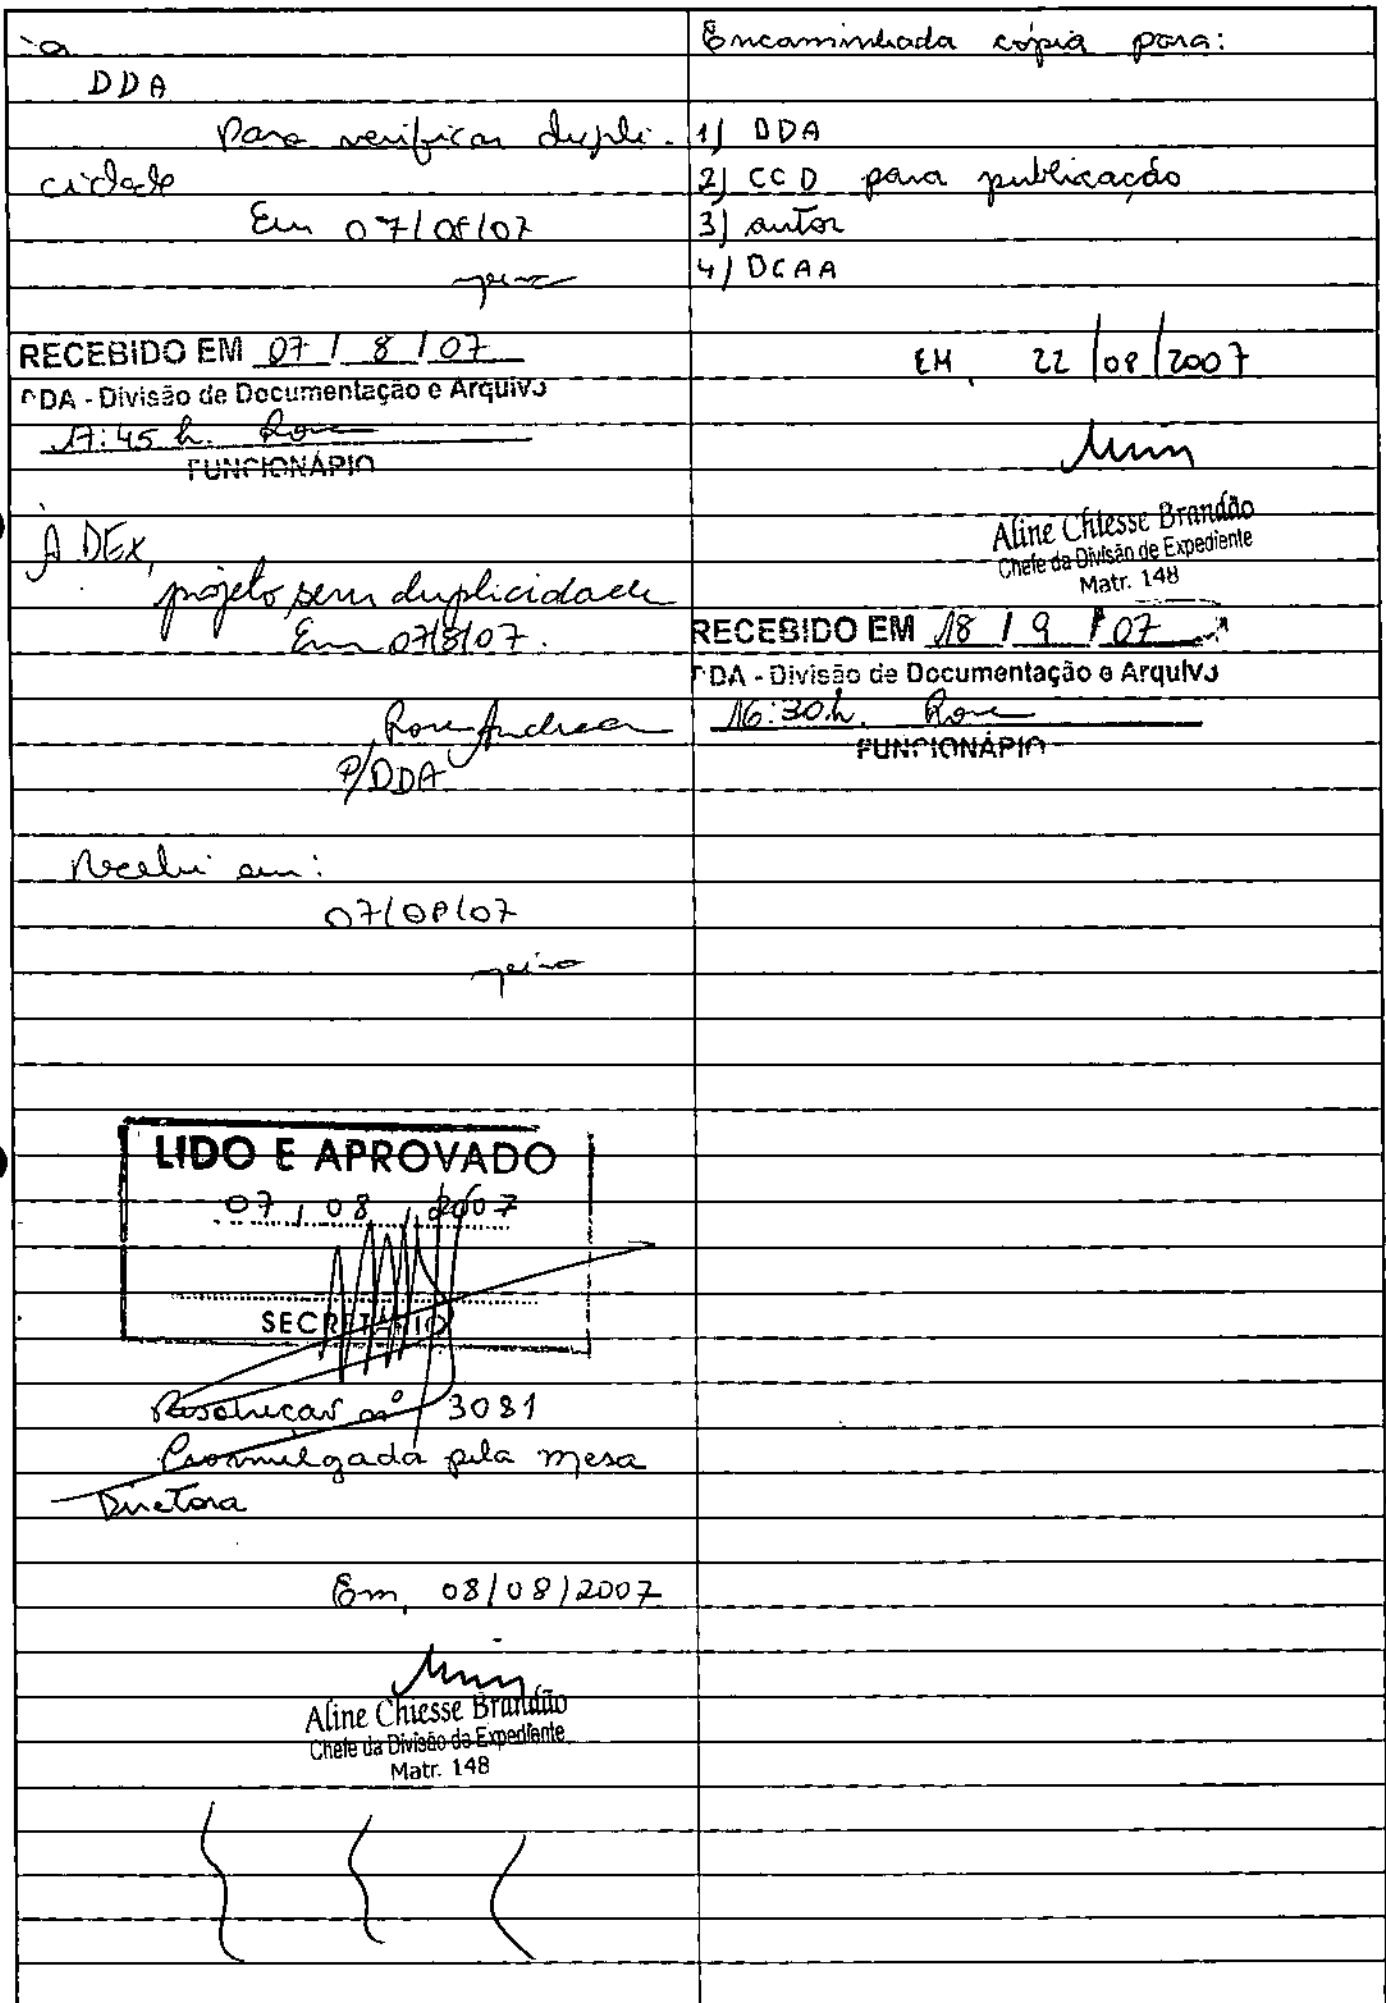 à
DDA
Para verificar dupli-
cidade
Em 07/08/07
RECEBIDO EM 07 / 8 / 07
DDA - Divisão de Documentação e Arquivo
17:45 h. Rose
FUNCIONÁRIO
À DEX,
projeto sem duplicidade
Em 07/8/07.
Rose Andrea
P/DDA
Recebi em:
07/08/07
LIDO E APROVADO
07 / 08 / 2007
SECRETÁRIO
Resolução nº 3081
Promulgada pela mesa
Diretora
Em, 08/08/2007
Aline Chiesse Brandão
Chefe da Divisão de Expediente
Matr. 148
Encaminhada cópia para:
1) DDA
2) CCD para publicação
3) autor
4) DCAA
EM, 22/08/2007
Aline Chiesse Brandão
Chefe da Divisão de Expediente
Matr. 148
RECEBIDO EM 18 / 9 / 07
DDA - Divisão de Documentação e Arquivo
16:30 h. Rose
FUNCIONÁRIO